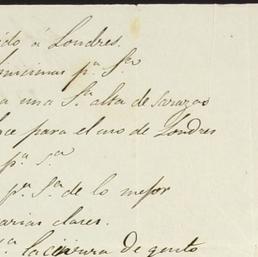 ido á Londres.
nisimas p.ª S.ra
a una S.ra alta de Sarazas
ce para el uso de Londres
p.ª S.ra
p.ª S.ª de lo mejor
arias clases.
de gusto